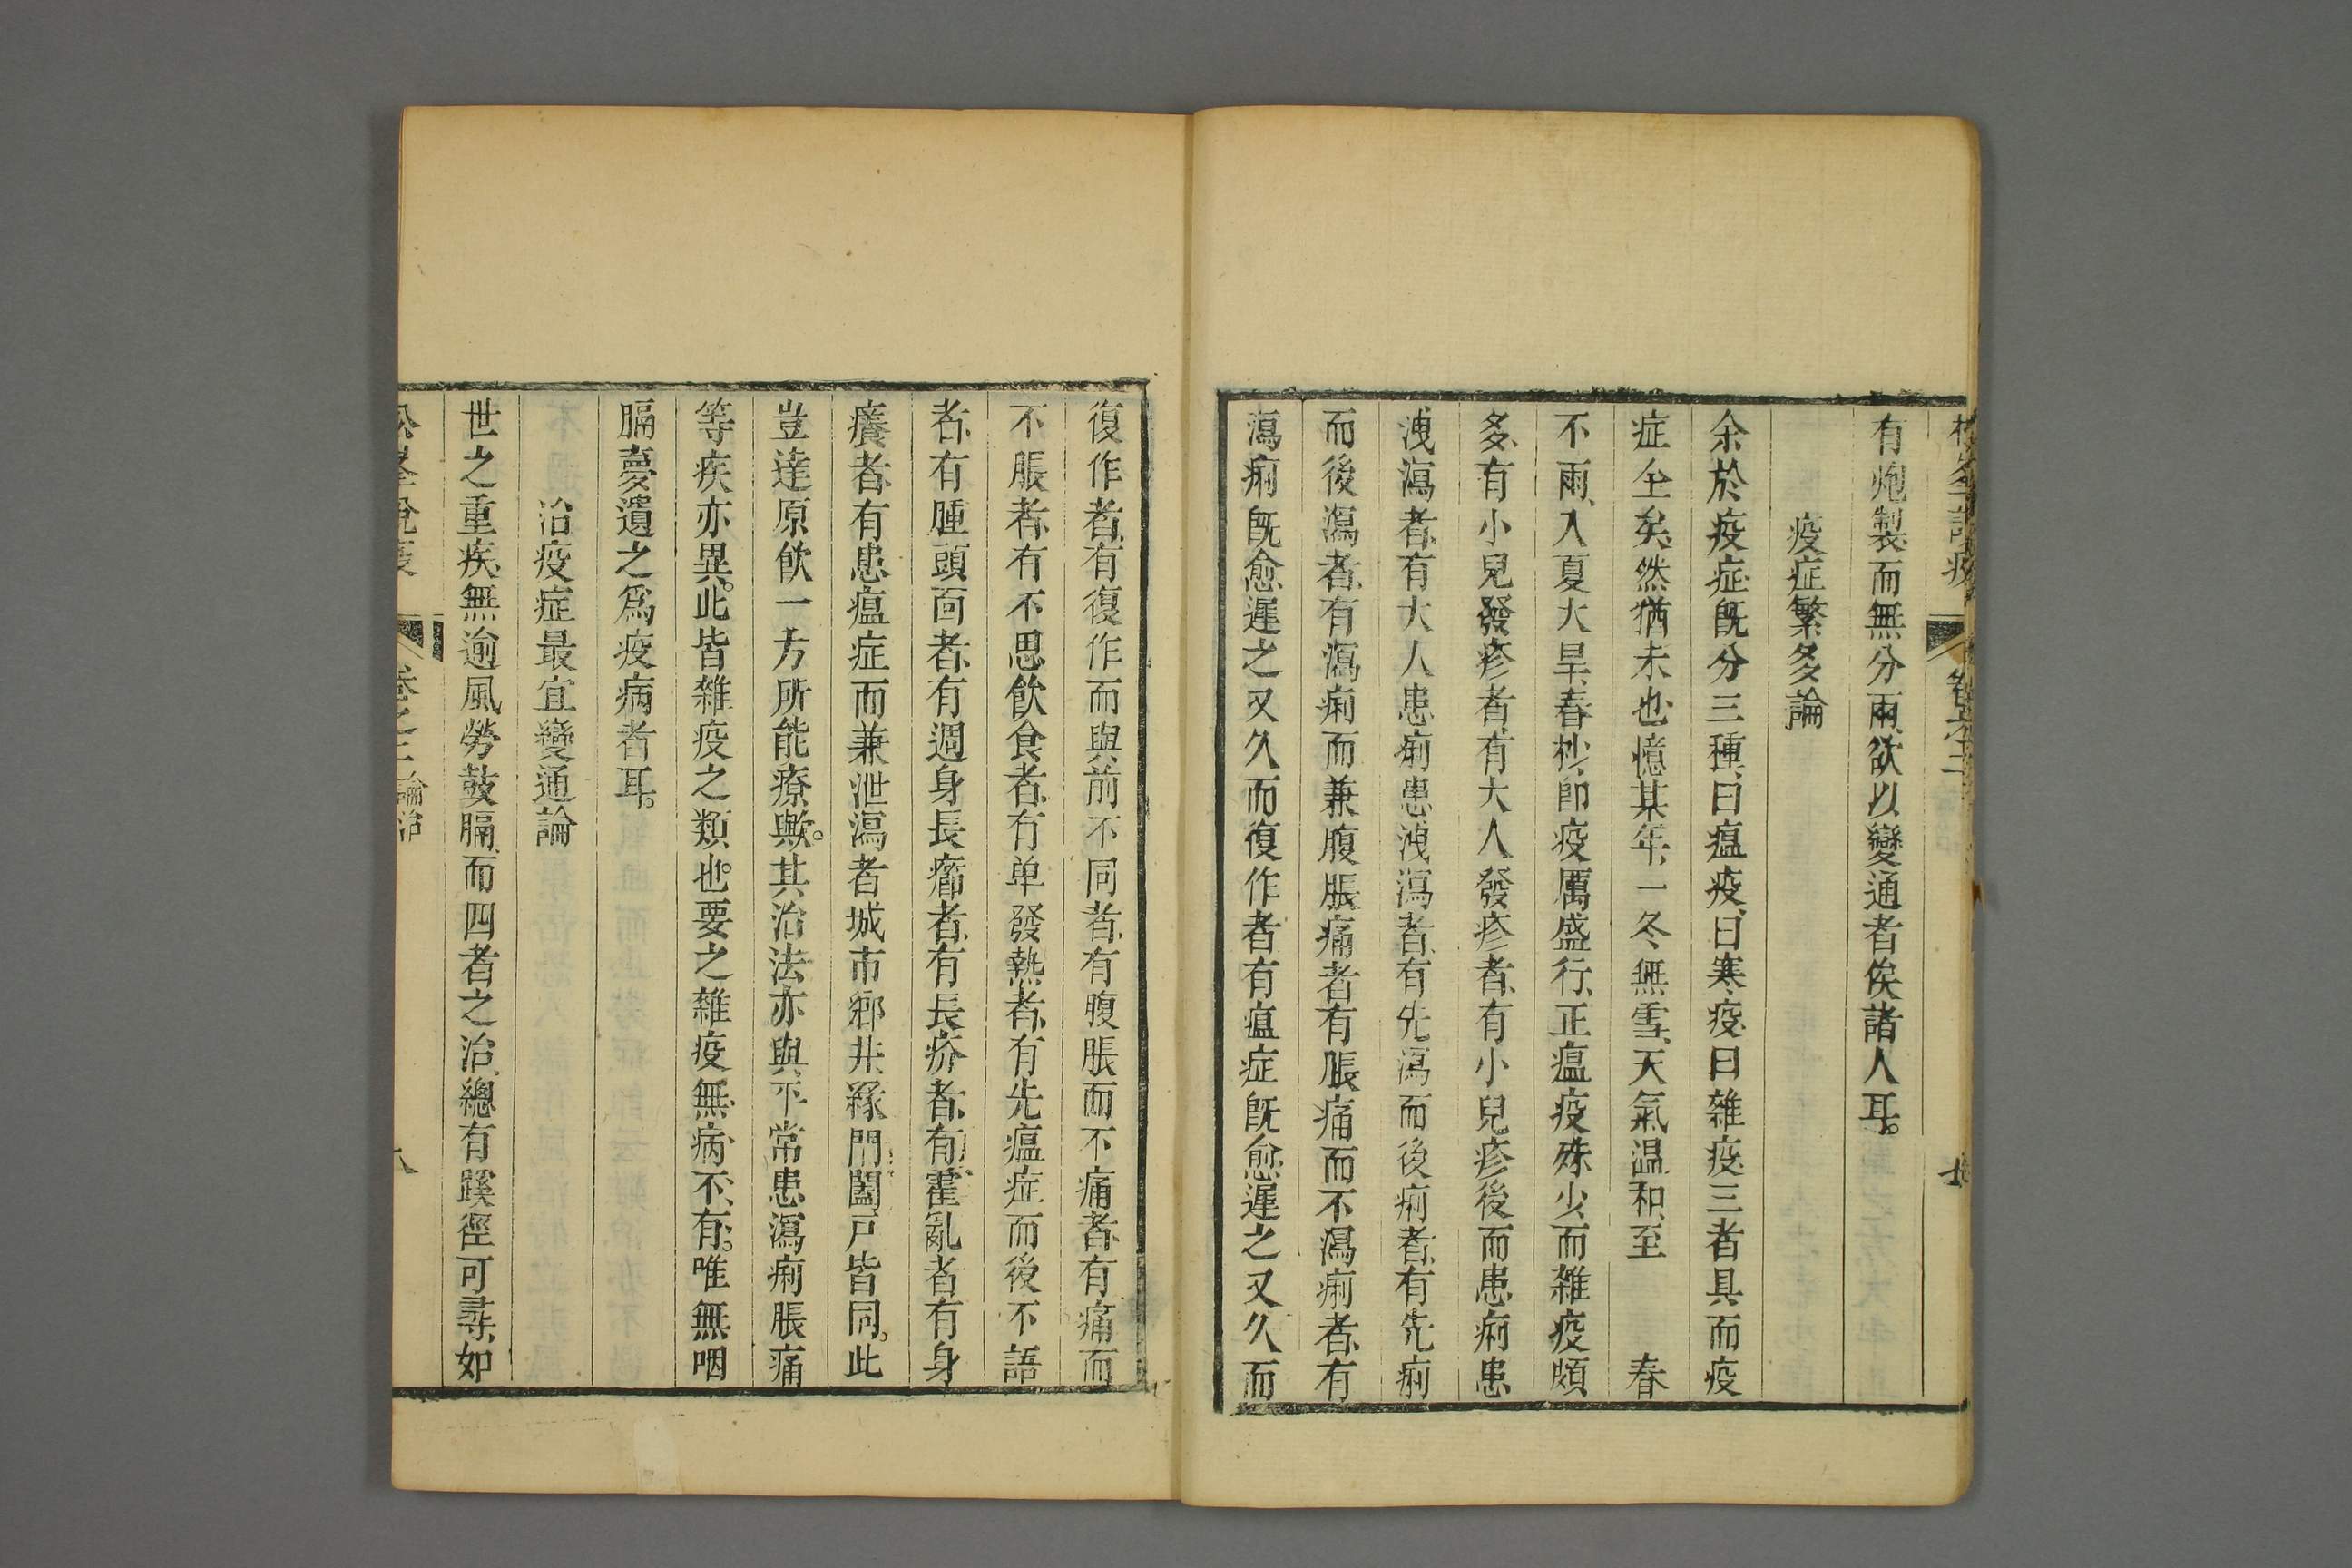 有炮製而無分兩欲以變通者俟諸人耳。
疫症繁多論
余於疫症既分三種、曰瘟疫、曰寒疫、曰雜疫、三者具而疫
症全矣、然猶未也、憶某年、一冬無雪、天氣温和、至春
不雨、入夏大旱、春杪、即疫厲盛行、正瘟疫殊少、而雜疫頗
多、有小兒發疹者、有大人發疹者、有小兒疹後而患痢患
洩瀉者、有大人患痢患洩瀉者、有先瀉而後痢者、有先痢
而後瀉者、有瀉痢而兼腹脹痛者、有脹痛而不瀉痢者、有
瀉痢既愈遲之又久而復作者、有瘟症既愈遲之又久而
復作者、有復作而與前不同者、有腹脹而不痛者、有痛而
不脹者、有不思飲食者、有单發熱者、有先瘟症而後不語
者、有腫頭面者、有週身長癤者、有長疥者、有霍亂者、有身
癢者、有患瘟症而兼泄瀉者、城市鄉井、緣門闔戶皆同。此
豈達原飲一方所能療歟。其治法亦與平常患瀉痢脹痛
等疾亦異。此皆雜疫之類也。要之雜疫無病不有。唯無咽
膈夢遺之為疫病者耳。
治疫症最宜變通論
世之重疾、無逾風勞鼓膈、而四者之治、總有蹊徑可尋、如
松峯說疫 卷之二 論治 八